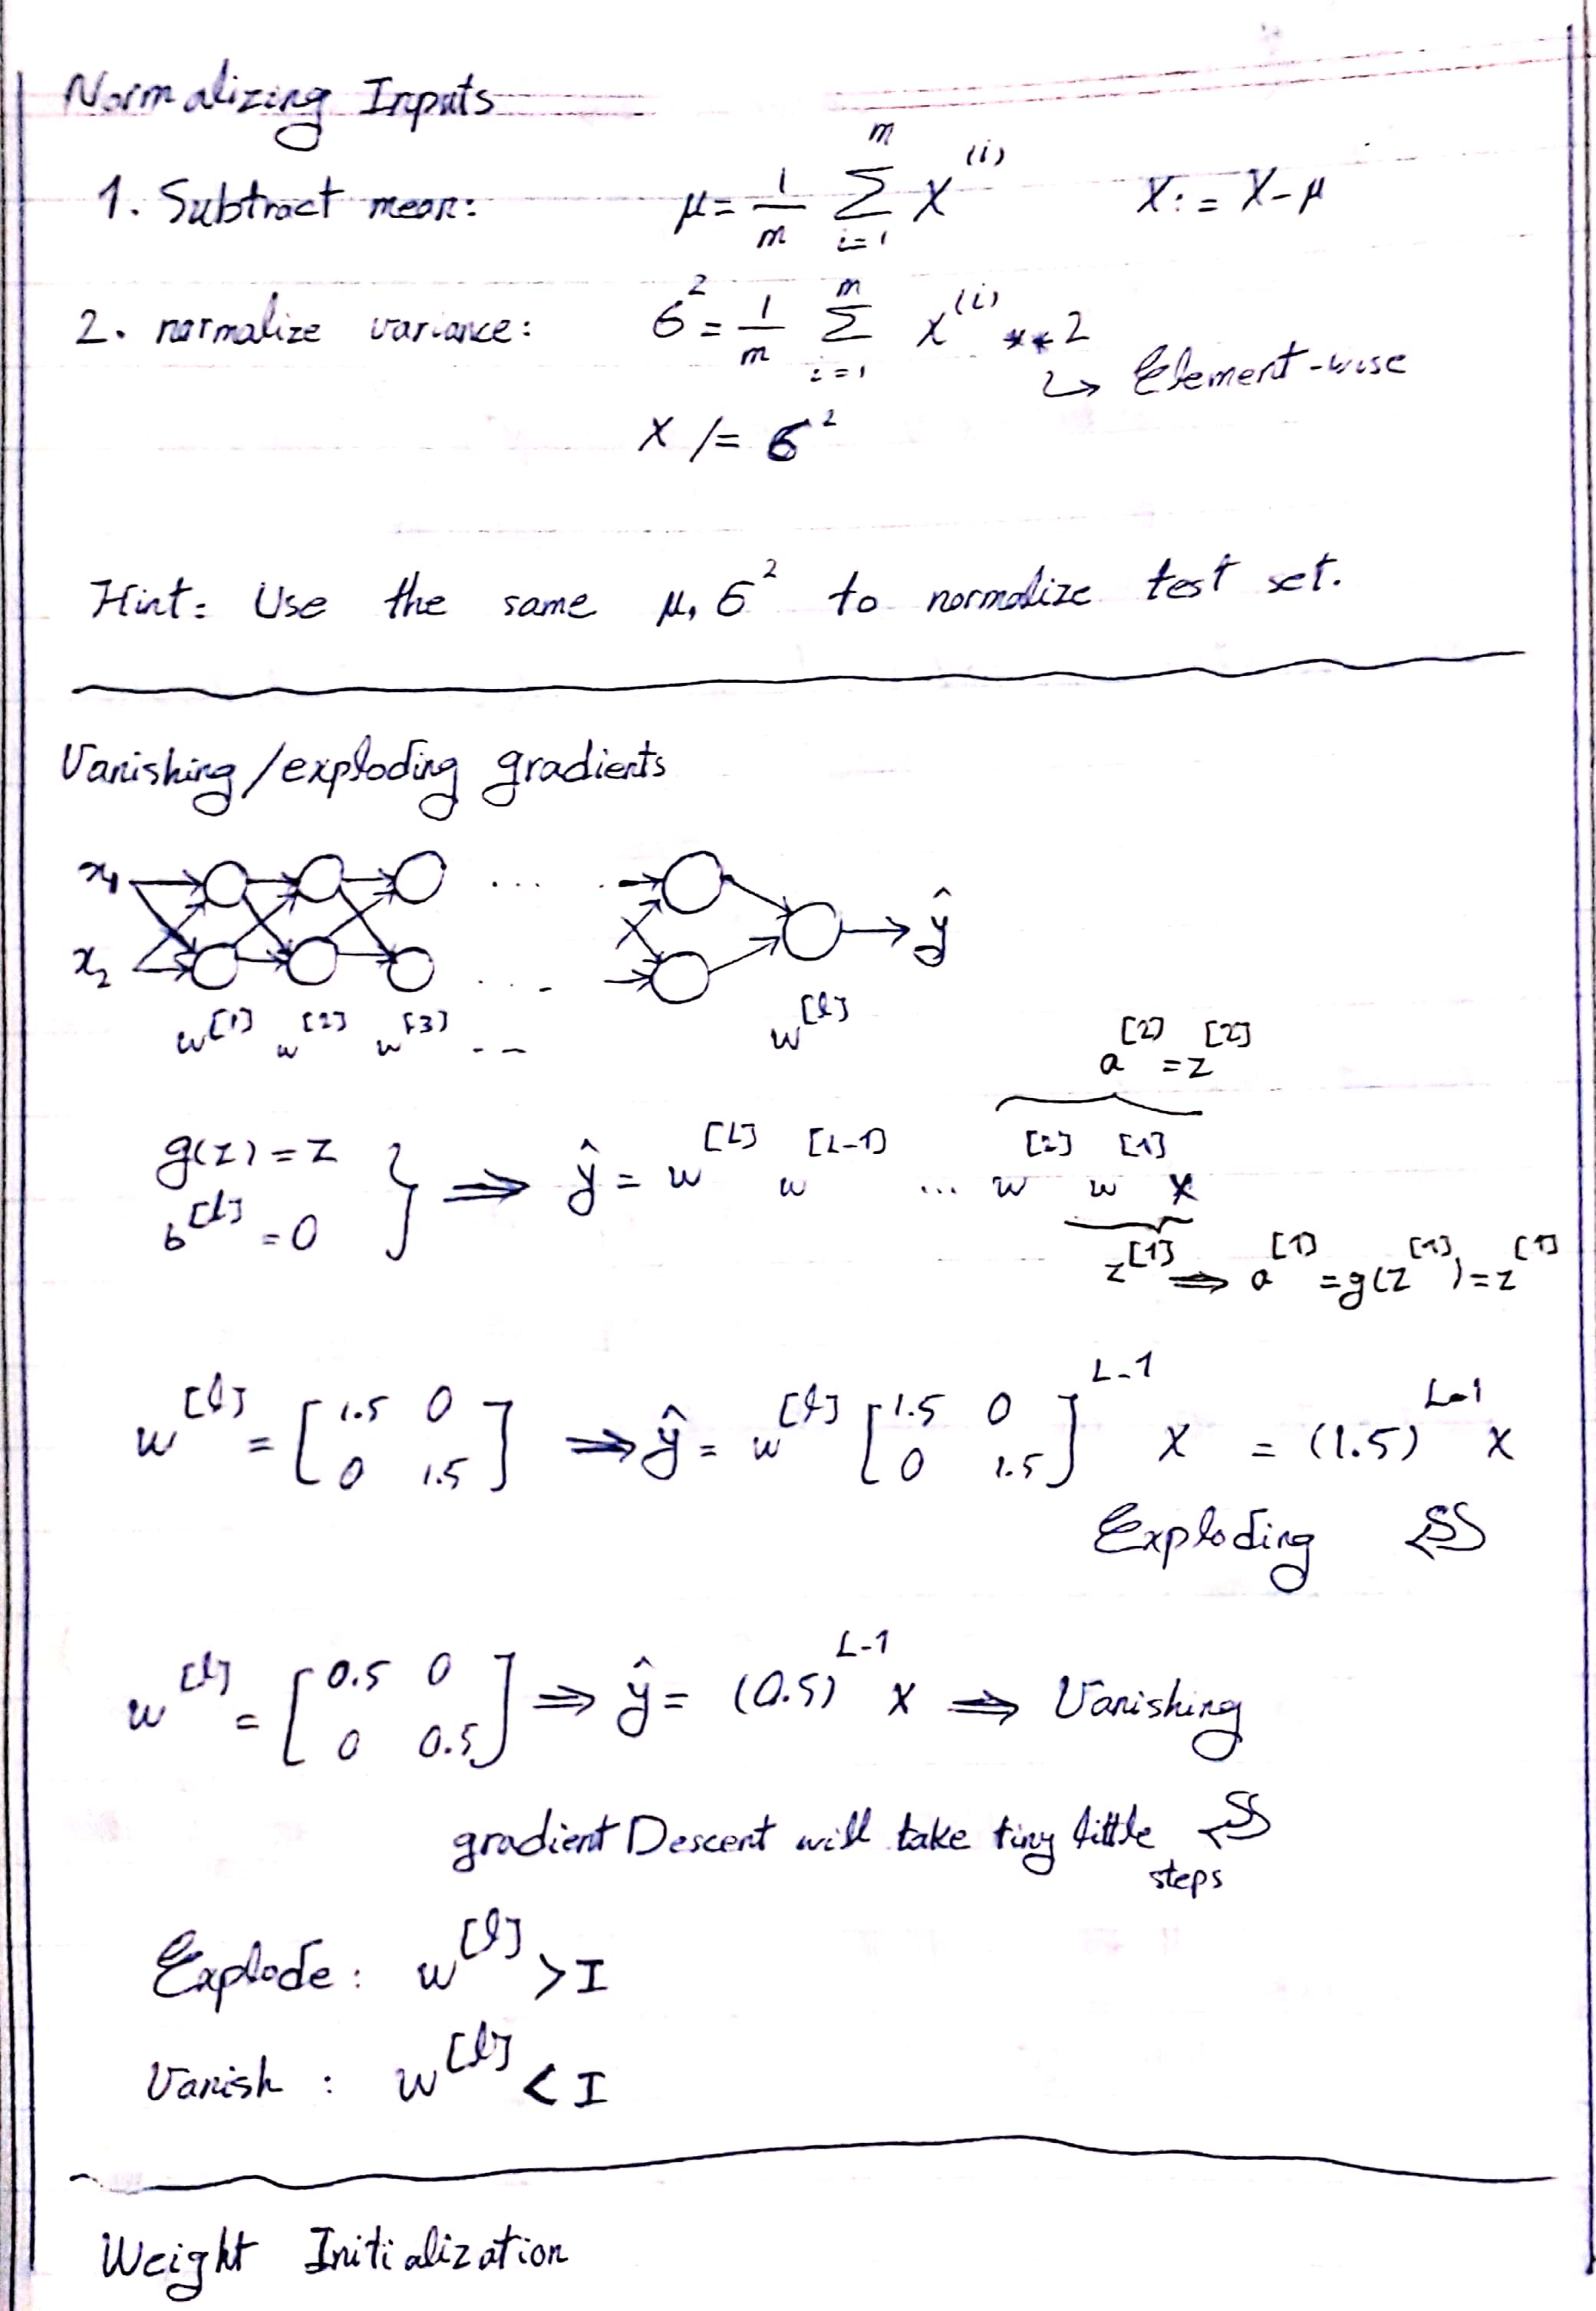 Normalizing Inputs
1. Subtract mean: μ = 1/m Σ_{i=1}^{m} X^{(i)} X := X - μ
2. normalize variance: σ² = 1/m Σ_{i=1}^{m} X^{(i)} ** 2
↳ Element-wise
X /= σ²
Hint: Use the same μ, σ² to normalize test set.
Vanishing/exploding gradients
x₁ ... 
x₂ ... ŷ
w^{[1]} w^{[2]} w^{[3]} ... w^{[l]}
a^{[2]} = z^{[2]}
g(z) = z
b^{[l]} = 0 } ⟹ ŷ = w^{[L]} w^{[L-1]} ... w^{[2]} w^{[1]} X
z^{[1]} ⟹ a^{[1]} = g(z^{[1]}) = z^{[1]}
w^{[l]} = [1.5 0; 0 1.5] ⟹ ŷ = w^{[l]} [1.5 0; 0 1.5]^{L-1} X = (1.5)^{L-1} X
Exploding ⇐
w^{[l]} = [0.5 0; 0 0.5] ⟹ ŷ = (0.5)^{L-1} X ⟹ Vanishing
gradient Descent will take tiny little steps ⇐
Explode: w^{[l]} > I
Vanish: w^{[l]} < I
Weight Initialization